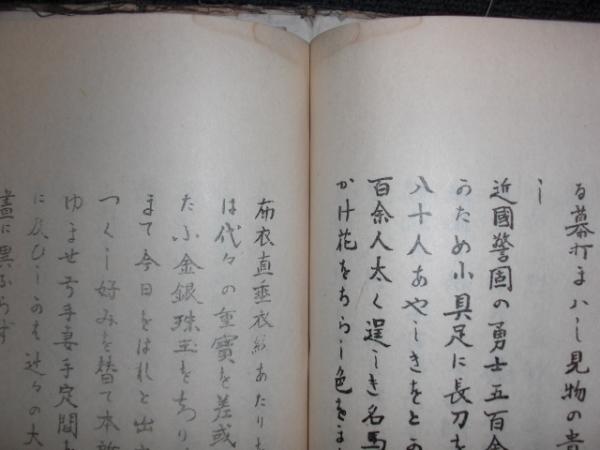 る幕打まハし見物の貴
し
近國警固の勇士五百余
のため小具足に長刀を
八十人あやしきをとの
百余人太く逞しき名馬
かけ花をちらし色をま
布衣直垂衣紋あたりを
は代々の重寶を差或
たふ金銀珠玉をちり
まて今日をはれと出
つくし好みを替て本
ゆませ弓手妻手定間
に及ひしのも辻々の大
盡に異ならす